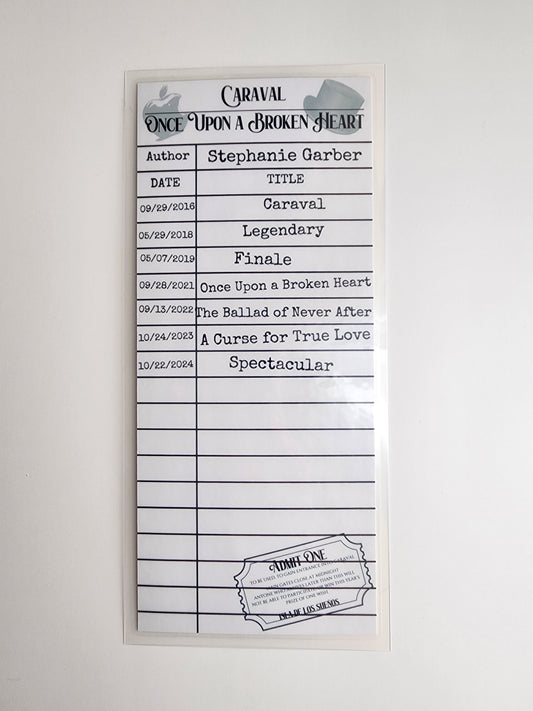 CARAVAL
ONCE UPON A BROKEN HEART
Author Stephanie Garber
DATE TITLE
09/29/2016 Caraval
05/29/2018 Legendary
05/07/2019 Finale
09/28/2021 Once Upon a Broken Heart
09/13/2022 The Ballad of Never After
10/24/2023 A Curse for True Love
10/22/2024 Spectacular
ADMIT ONE
TO BE USED TO GAIN ENTRANCE INTO CARAVAL
GATES CLOSE AT MIDNIGHT
ANYONE WHO LATER THAN THIS WILL
NOT BE ABLE TO WIN THIS YEAR'S
PRIZE OF ONE WISH
ISLA DE LOS SUEÑOS